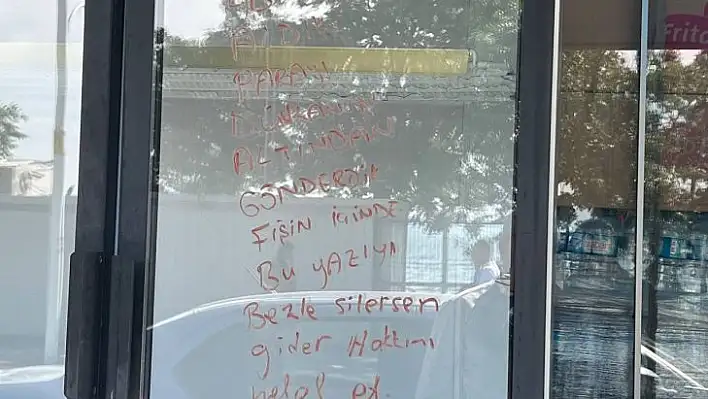 PARAYI
DÜKKANIN
ALTINDAN
GÖNDERDİM
FİŞİN İÇİNDE
BU YAZIYI
Bezle silersen
gider Hakkını
helal et.
Frito